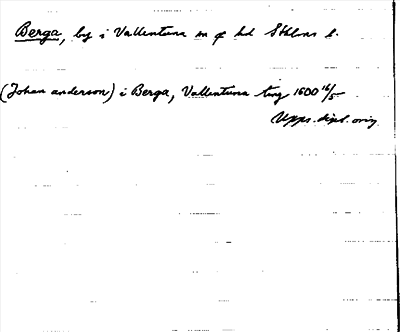 Berga, by i Vallentuna sn o hd Sthlms l.
(Johan anderson) i Berga, Vallentuna ting 1600 16/5
Upps. dipl. orig.